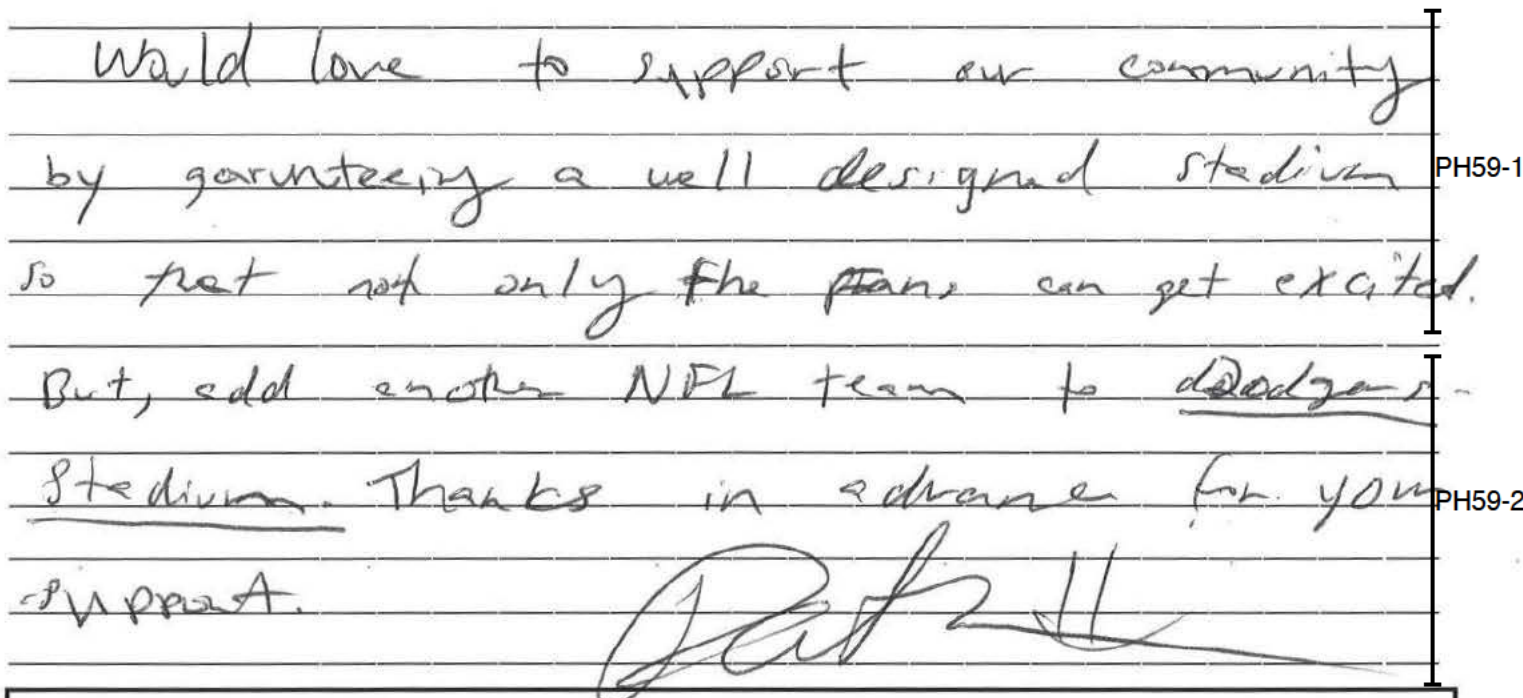 Would love to support our community
by garunteeing a well designed stadium PH59-1
so that not only the fans can get excited.
But, add another NFL team to dodgers
Stadium. Thanks in advance for your PH59-2
support.